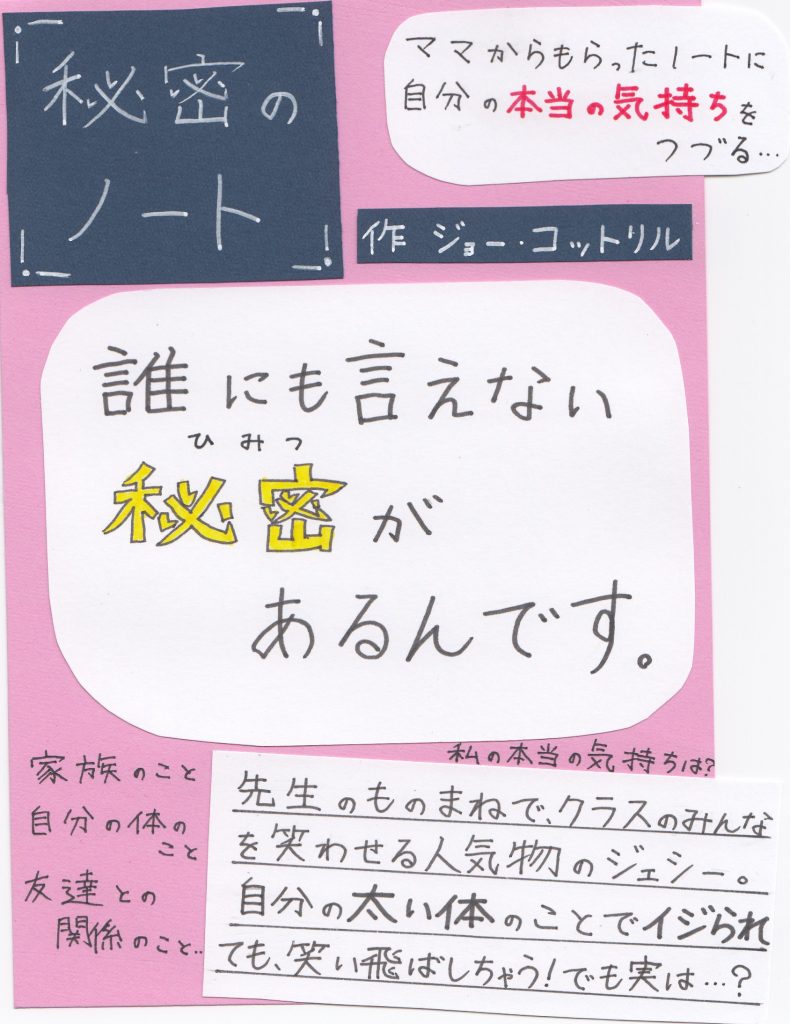 秘密の
ノート
ママからもらったノートに
自分の本当の気持ちを
つづる…
作 ジョー・コットリル
誰にも言えない
ひみつ
秘密が
あるんです。
家族のこと
自分の体の
こと
友達との
関係のこと…
私の本当の気持ちは?
先生のものまねで、クラスのみんな
を笑わせる人気物のジェシー。
自分の太い体のことでイジられ
ても、笑い飛ばしちゃう!でも実は…?